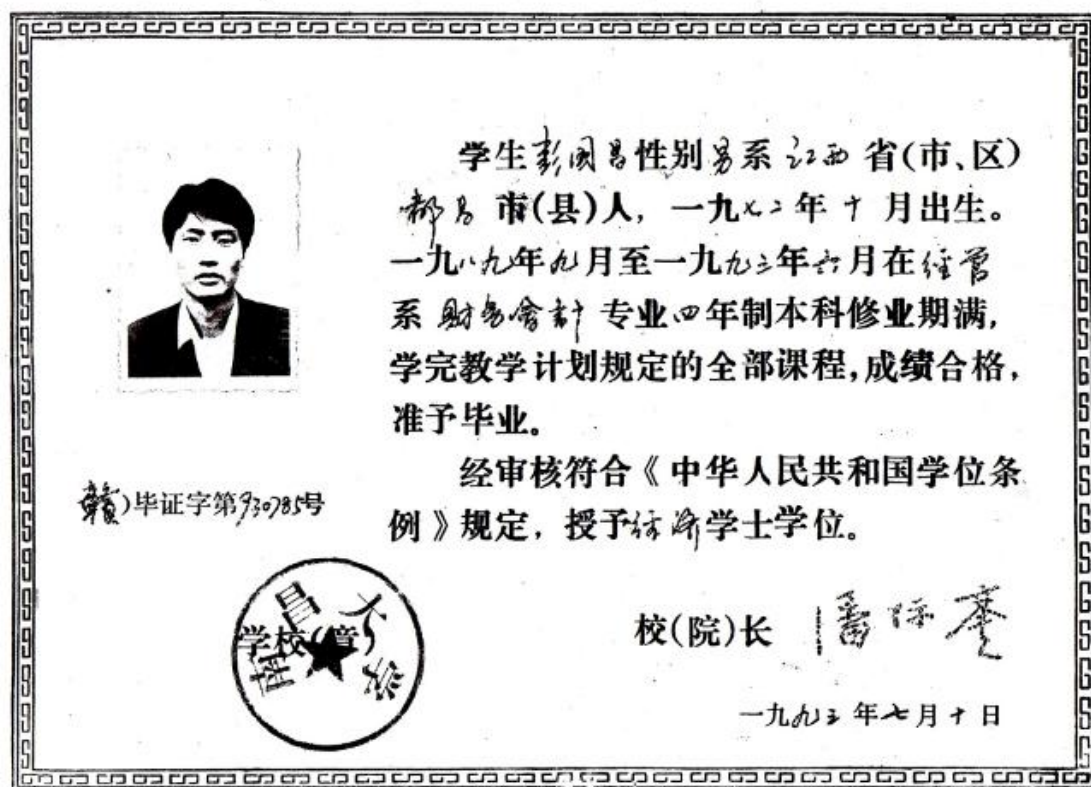 学生彭国昌性别男系江西省(市、区)
都昌市(县)人，一九七二年十月出生。
一九八九年九月至一九九三年六月在经管
系财务會计专业四年制本科修业期满，
学完教学计划规定的全部课程,成绩合格，
准予毕业。
经审核符合《中华人民共和国学位条
例》规定，授予经济学士学位。
赣)毕证字第930785号
南昌大学
学校(章)
校(院)长 潘际銮
一九九三年七月十日